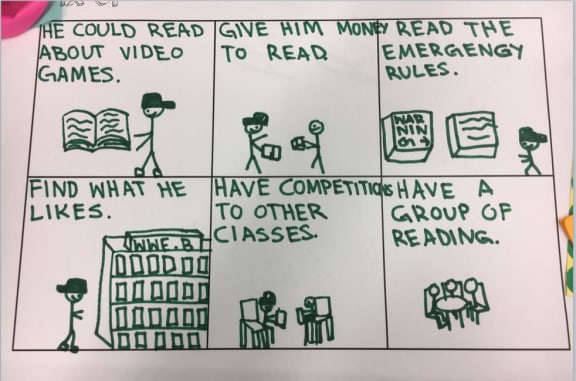 HE COULD READ
ABOUT VIDEO
GAMES.
GIVE HIM MONEY
TO READ
READ THE
EMERGENGY
RULES.
WAR
NIN
G →
FIND WHAT HE
LIKES.
WWE.B
HAVE COMPETITIONS
TO OTHER
CLASSES.
HAVE A
GROUP OF
READING.